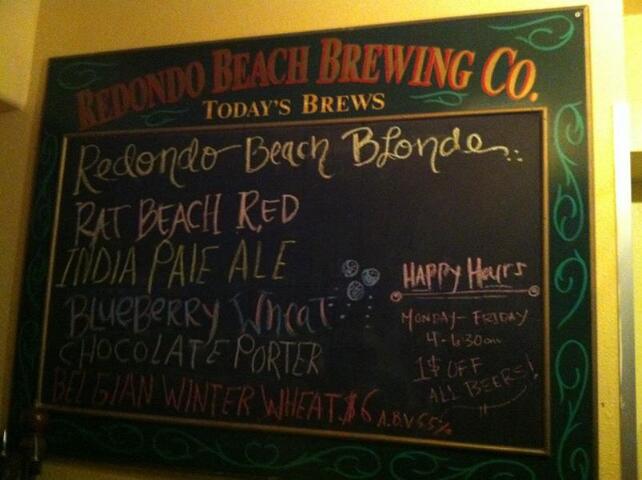 REDONDO BEACH BREWING CO.
TODAY'S BREWS
Redondo Beach Blonde
RAT BEACH RED
INDIA PALE ALE
BLUEBERRY Wheat
CHOCOLATE PORTER
BELGIAN WINTER WHEAT $6 A.B.V 5.5%
HAPPY Hours
MONDAY-FRIDAY
4-6:30pm
1$ OFF
ALL BEERS!